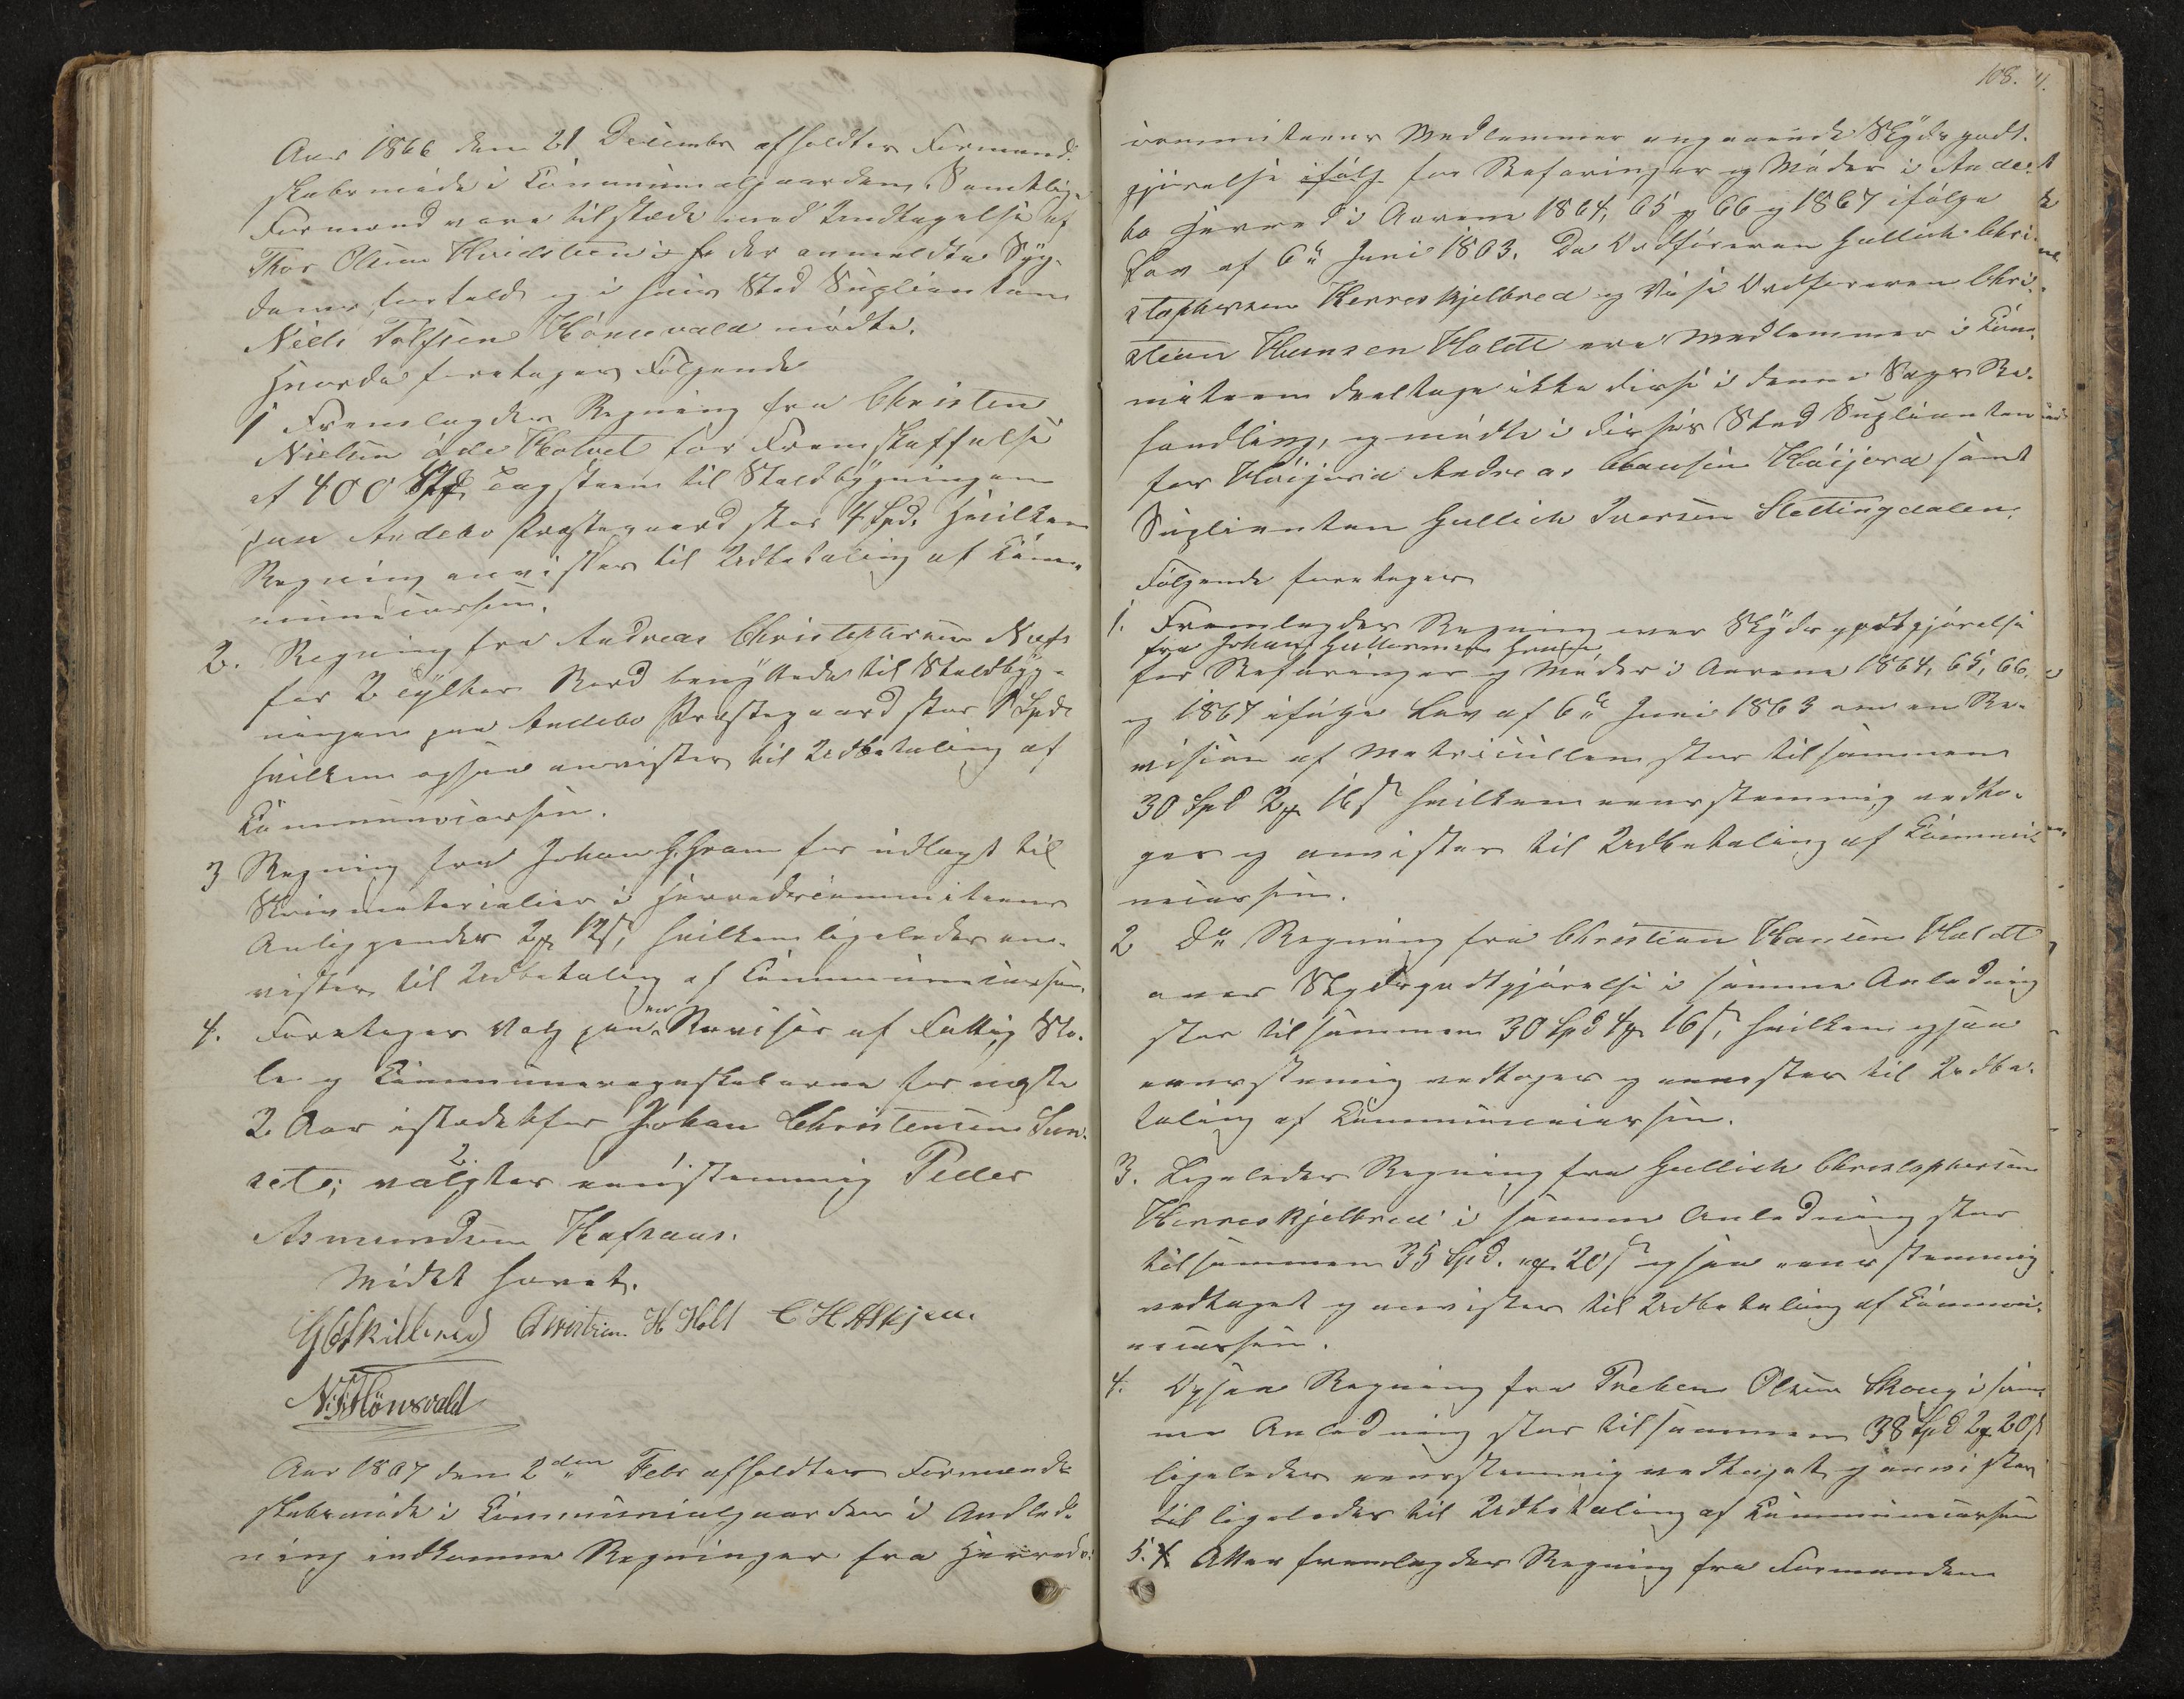 Aar 1866 den 21 December afholdtes Formand-
skabsmøde i Communalgaarden. Samtlige
Formænd vare tilstæde med Undtagelse af
Thor Olsen Hvidsteen der anmeldte Syg-
doms forfald og i hans Sted Suplianten
Niels Tolfsen Hönsvald mødte.
Hvorda foretages Følgende
1 Fremlagdes Regning fra Christen
Nielsen Holvet for Fremskaffelse
af 400 Tagsteen til Staldbygningen
paa Andebo Præstegaard stor 4 Spd. Hvilken
Regning anvistes til Udbetaling af Com-
munecassen.
2. Regning fra Andreas Christophersen Næs
for 2 Tylter Bord benyttede til Staldbyg-
ningen paa Andebo Præstegaard stor Spd
hvilken ogsaa anvistes til Udbetaling af
Communecassen.
3 Regning fra Johan G. Gran for udlagt til
Skrivmaterialier i Herredscommiteens
Anliggender 2 12 s, hvilken ligeledes an-
vistes til Udbetaling af Communecassen.
4. Foretages Valg paa en Revisor af Fattig Sko-
le og Communeregnskaberne for næste
2 Aar istedetfor Johan Christensen Sun-
set; valgtes eenstemmig Peder
2. 1.
Asmundsen Hafsaas.
Mødet hævet.
G Chr Skilbred Christian H Holt C H Askjem.
N. T. Hönsvald
Aar 1867 den 2den Febr afholdtes Formand-
skabsmøde i Communialgaarden i Andled-
ning indkomne Regninger fra Herreds-
108.
committeens Medlemmer angaaende Skydsgodt-
gjørelse ifølg for Befaringer og Møder i Ande-
bo Herred i Aarene 1864, 65 og 66 og 1867 ifølge
Lov af 6te Juni 1863. Da Ordføreren Gullich Chri-
stophersen Herreskjelbred og Vise Ordføreren Chri-
stian Hansen Holdt ere Medlemmer i Com-
miteen deeltage ikke disse i denne Sags Be-
handling, og mødte i disses Sted Suplianten
for Höijord Andreas Clausen Höijord samt
Suplianten Gullich Iversen Slettingdalen.
Følgende foretages
1. Fremlagdes Regning over Skydsgodtgjørelse
fra Johan Gullormsen Gran
for Befaringer og Møder i Aarene 1864, 65, 66
og 1867 ifølge Lov af 6te Juni 1863 om en Re-
vision af Matriculen stor tilsammen
30 Spd 2 16 s hvilken eenstemmig vedto-
ges og anvistes til Udbetaling af Commu-
necassen.
2 Do Regning fra Christian Hansen Holdt
over Skydsgodtgjørelse i samme Anledning
stor tilsammen 30 Spd 4 16 s, hvilken ogsaa
eenstemmig vedtoges og anvistes til Udbe-
taling af Communecassen.
3. Ligeledes Regning fra Gullich Christophersen
Herreskjelbred i samme Anledning stor
tilsammen 35 Spd. 20 s ogsaa eenstemmig
vedtaget og anvistes til Udbetaling af Commu-
necassen.
4. Ogsaa Regning fra Preben Olsen Skoug i sam-
me Anledning stor tilsammen 38 Spd 2 20 s
ligeledes eenstemmig vedtaget og anvistes
til ligeledes til Udbetaling af Communecassen
5. 4. Atter fremlagdes Regning fra Formanden